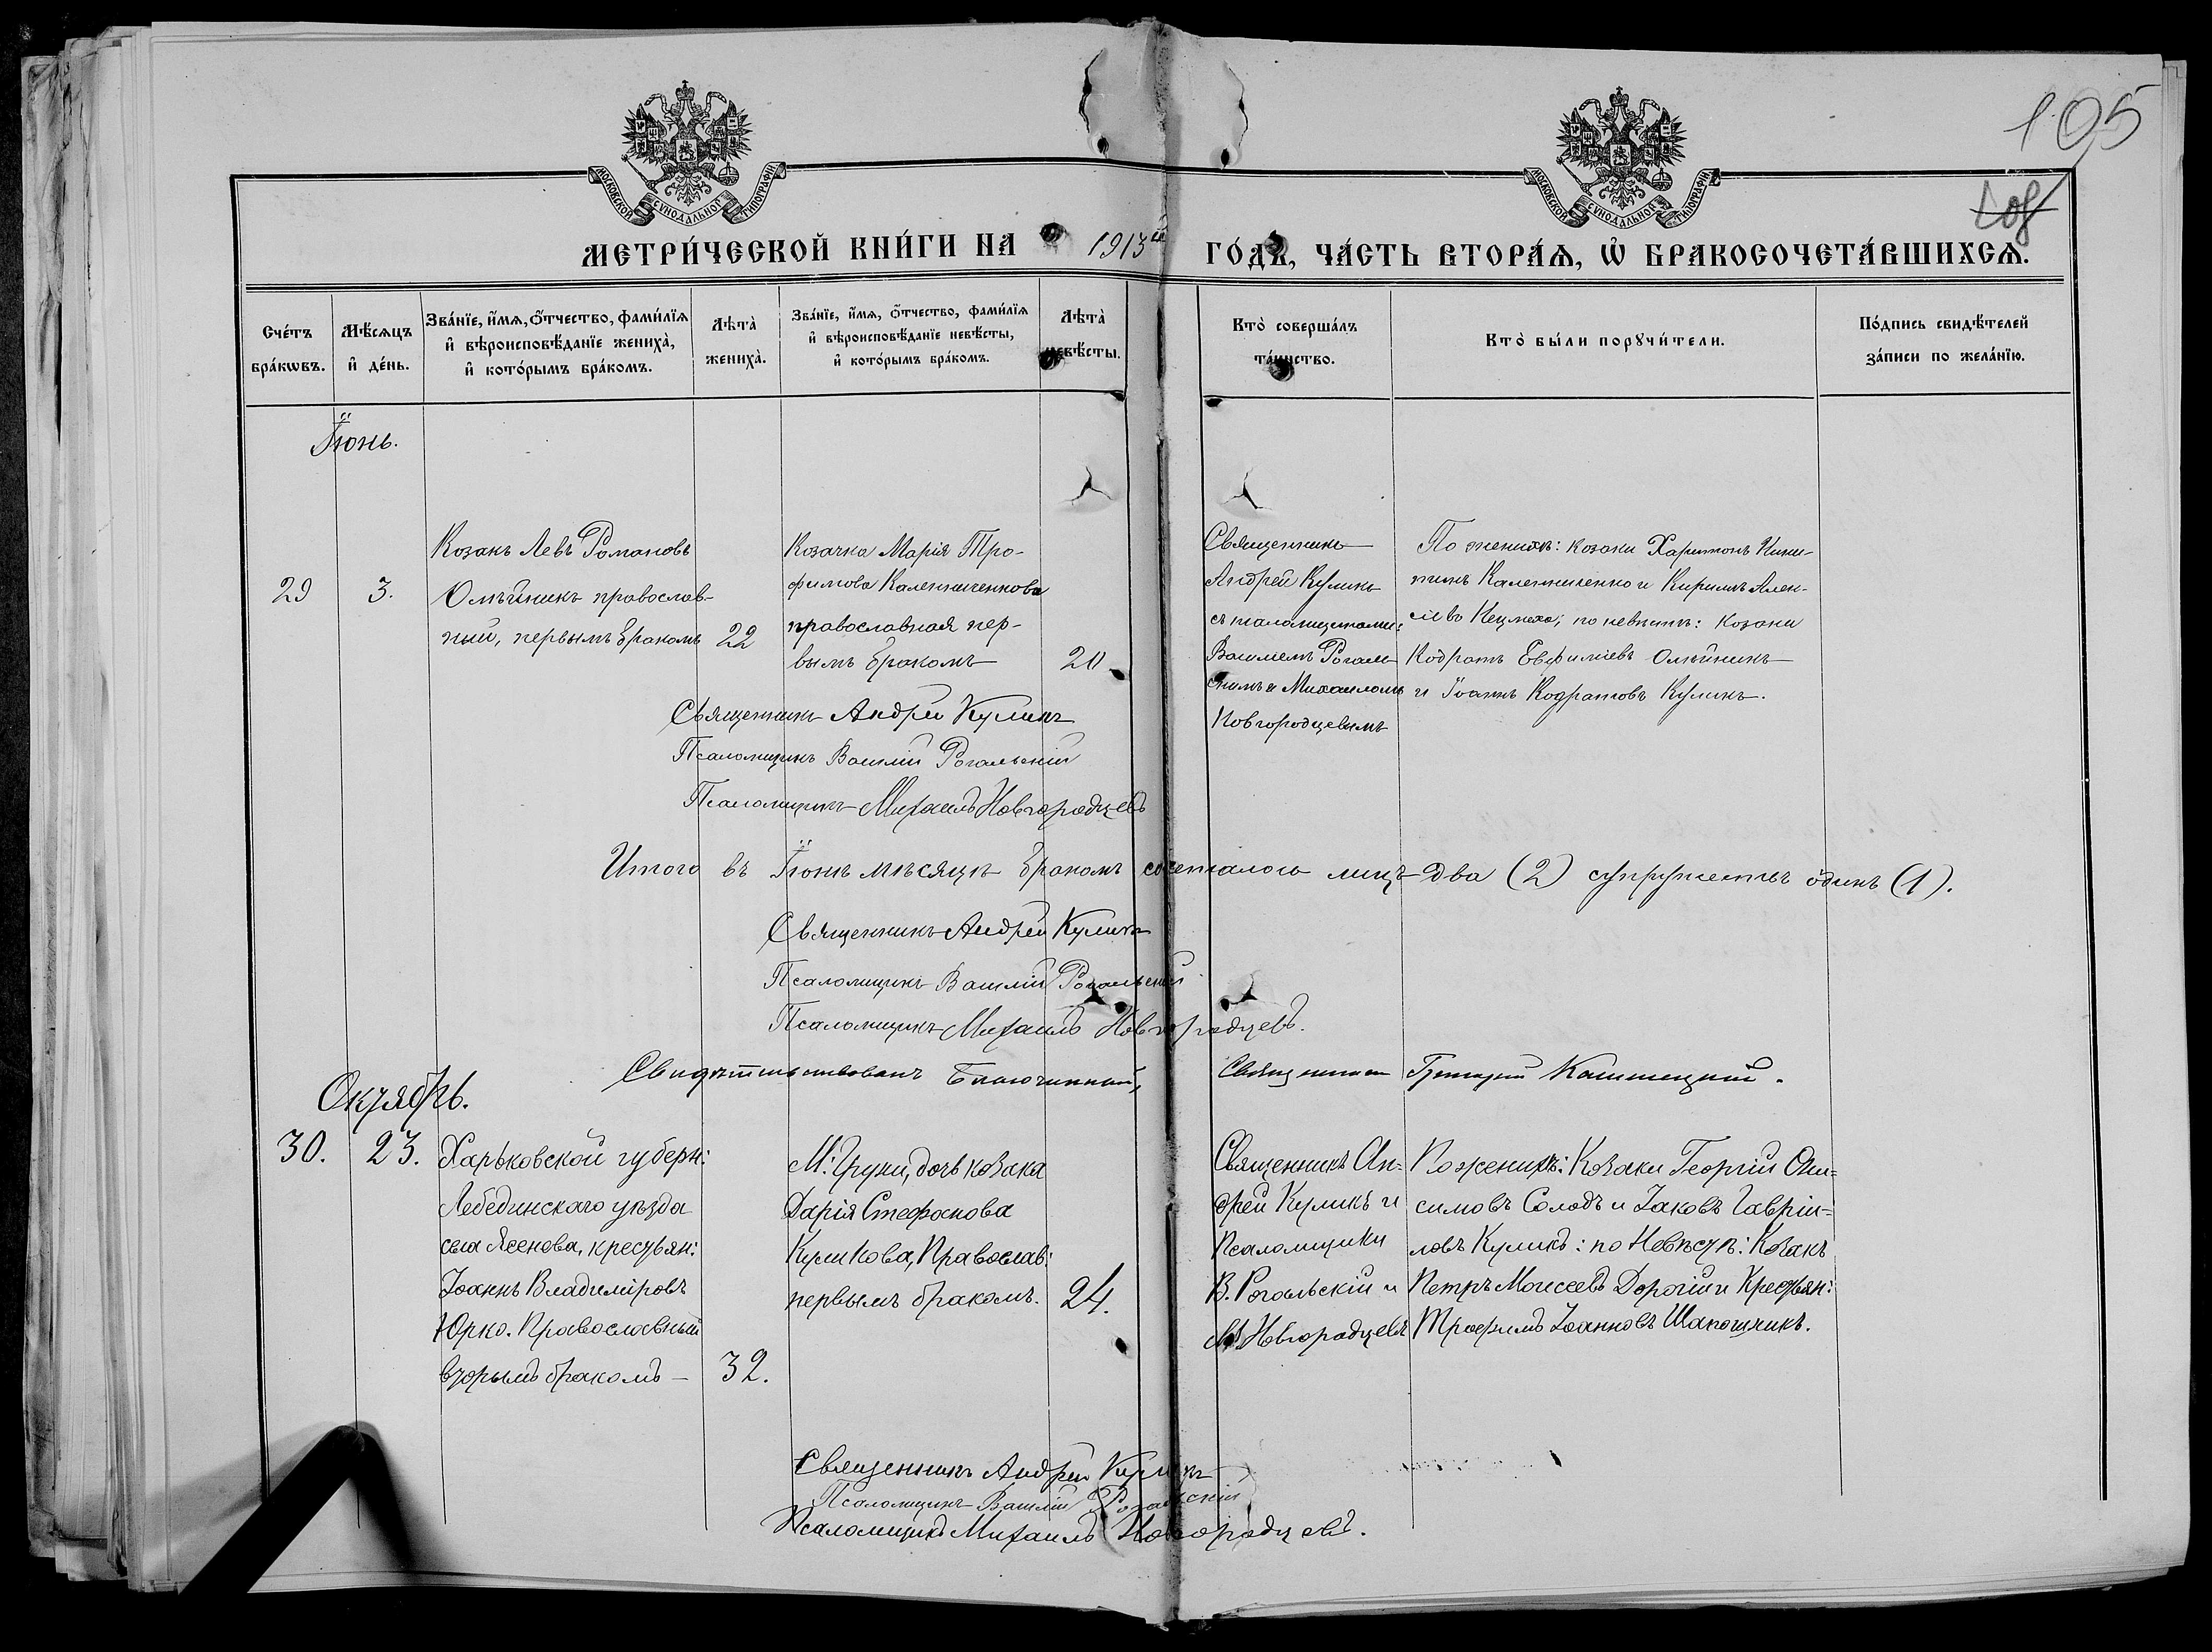 105
МОСКОВСКОЙ СѴНОДАЛЬНОЙ ТИПОГРАФІИ
МОСКОВСКОЙ СѴНОДАЛЬНОЙ ТИПОГРАФІИ
МЕТРИ́ЧЕСКОЙ КНИ́ГИ НА 1913й ГО́ДЪ, ЧА́СТЬ ВТОРА́Я, Ѡ҆ БРАКОСОЧЕТА́ВШИХСѦ.
Сче́тъ бра́кѡвъ.
Мѣ́сяцъ и҆ де́нь.
Зва́нїе, и҆́мя, ѻ҆́тчество, фами́лїя
и҆ вѣроисповѣ́данїе жениха̀,
и҆ кото́рымъ бра́комъ.
Лѣта̀
жениха̀.
Зва́нїе, и҆́мя, ѻ҆́тчество, фами́лїя
и҆ вѣроисповѣ́данїе невѣ́сты,
и҆ кото́рымъ бра́комъ.
Лѣта̀
невѣ́сты.
Кто̀ соверша́лъ
та́инство.
Кто̀ бы́ли порꙋчи́тели.
По́дпись свидѣ́телей
за́писи по жела́нїю.
Їюнь.
29
3.
Козакъ Левъ Романовъ
Олѣйникъ православ-
ный, первымъ бракомъ
22
Козачка Марія Тро-
фимова Калениченкова
православная пер-
вымъ бракомъ
20
Священникъ
Андрей Куликъ
съ псаломщиками:
Василіемъ Рогаль-
скимъ и Михаиломъ
Новгородцевымъ
По женихѣ: козаки Харитонъ Ники-
тинъ Калениченко и Кириллъ Алек-
сіевъ; по невѣстѣ: Козаки
Кодратъ Евфиміевъ Олѣйникъ
и Іоаннъ Кодратовъ Куликъ.
Священникъ Андрей Куликъ
Псаломщикъ Василій Рогальскій
Псаломщикъ Михаилъ Новгородцевъ
Итого въ Їюнѣ мѣсяцѣ бракомъ сочеталось лицъ два (2) супружествъ одинъ (1).
Священникъ Андрей Куликъ
Псаломщикъ Василій Рогальскій
Псаломщикъ Михаилъ Новгородцевъ.
Свидѣтельствовалъ Благочинный, Священникъ Григорій
Октябрь.
30.
23.
Харьковской губерн:
Лебединскаго уѣзда
села Ясенова, крестьян:
Іоаннъ Владиміровъ
Юрко. Православный
вторымъ бракомъ –
32.
М: Груни, дочь козака
Дарія Стефанова
Куликова, Православ:
первымъ бракомъ.
24.
Священникъ Ан=
дрей Куликъ и
Псаломщики
В. Рогальскій и
М. Новгородцевъ
По женихѣ: Козаки Георгій Они=
симовъ Солодъ и Іаковъ Гавріи=
ловъ Куликъ: по Невѣстѣ: Козакъ
Петръ Моисеевъ Дорогій и Крестьян:
Трофимъ Іоанновъ Шапошникъ.
Священникъ Андрей Куликъ
Псаломщикъ Василій Рогальскій
Псаломщикъ Михаилъ Новгородцевъ.